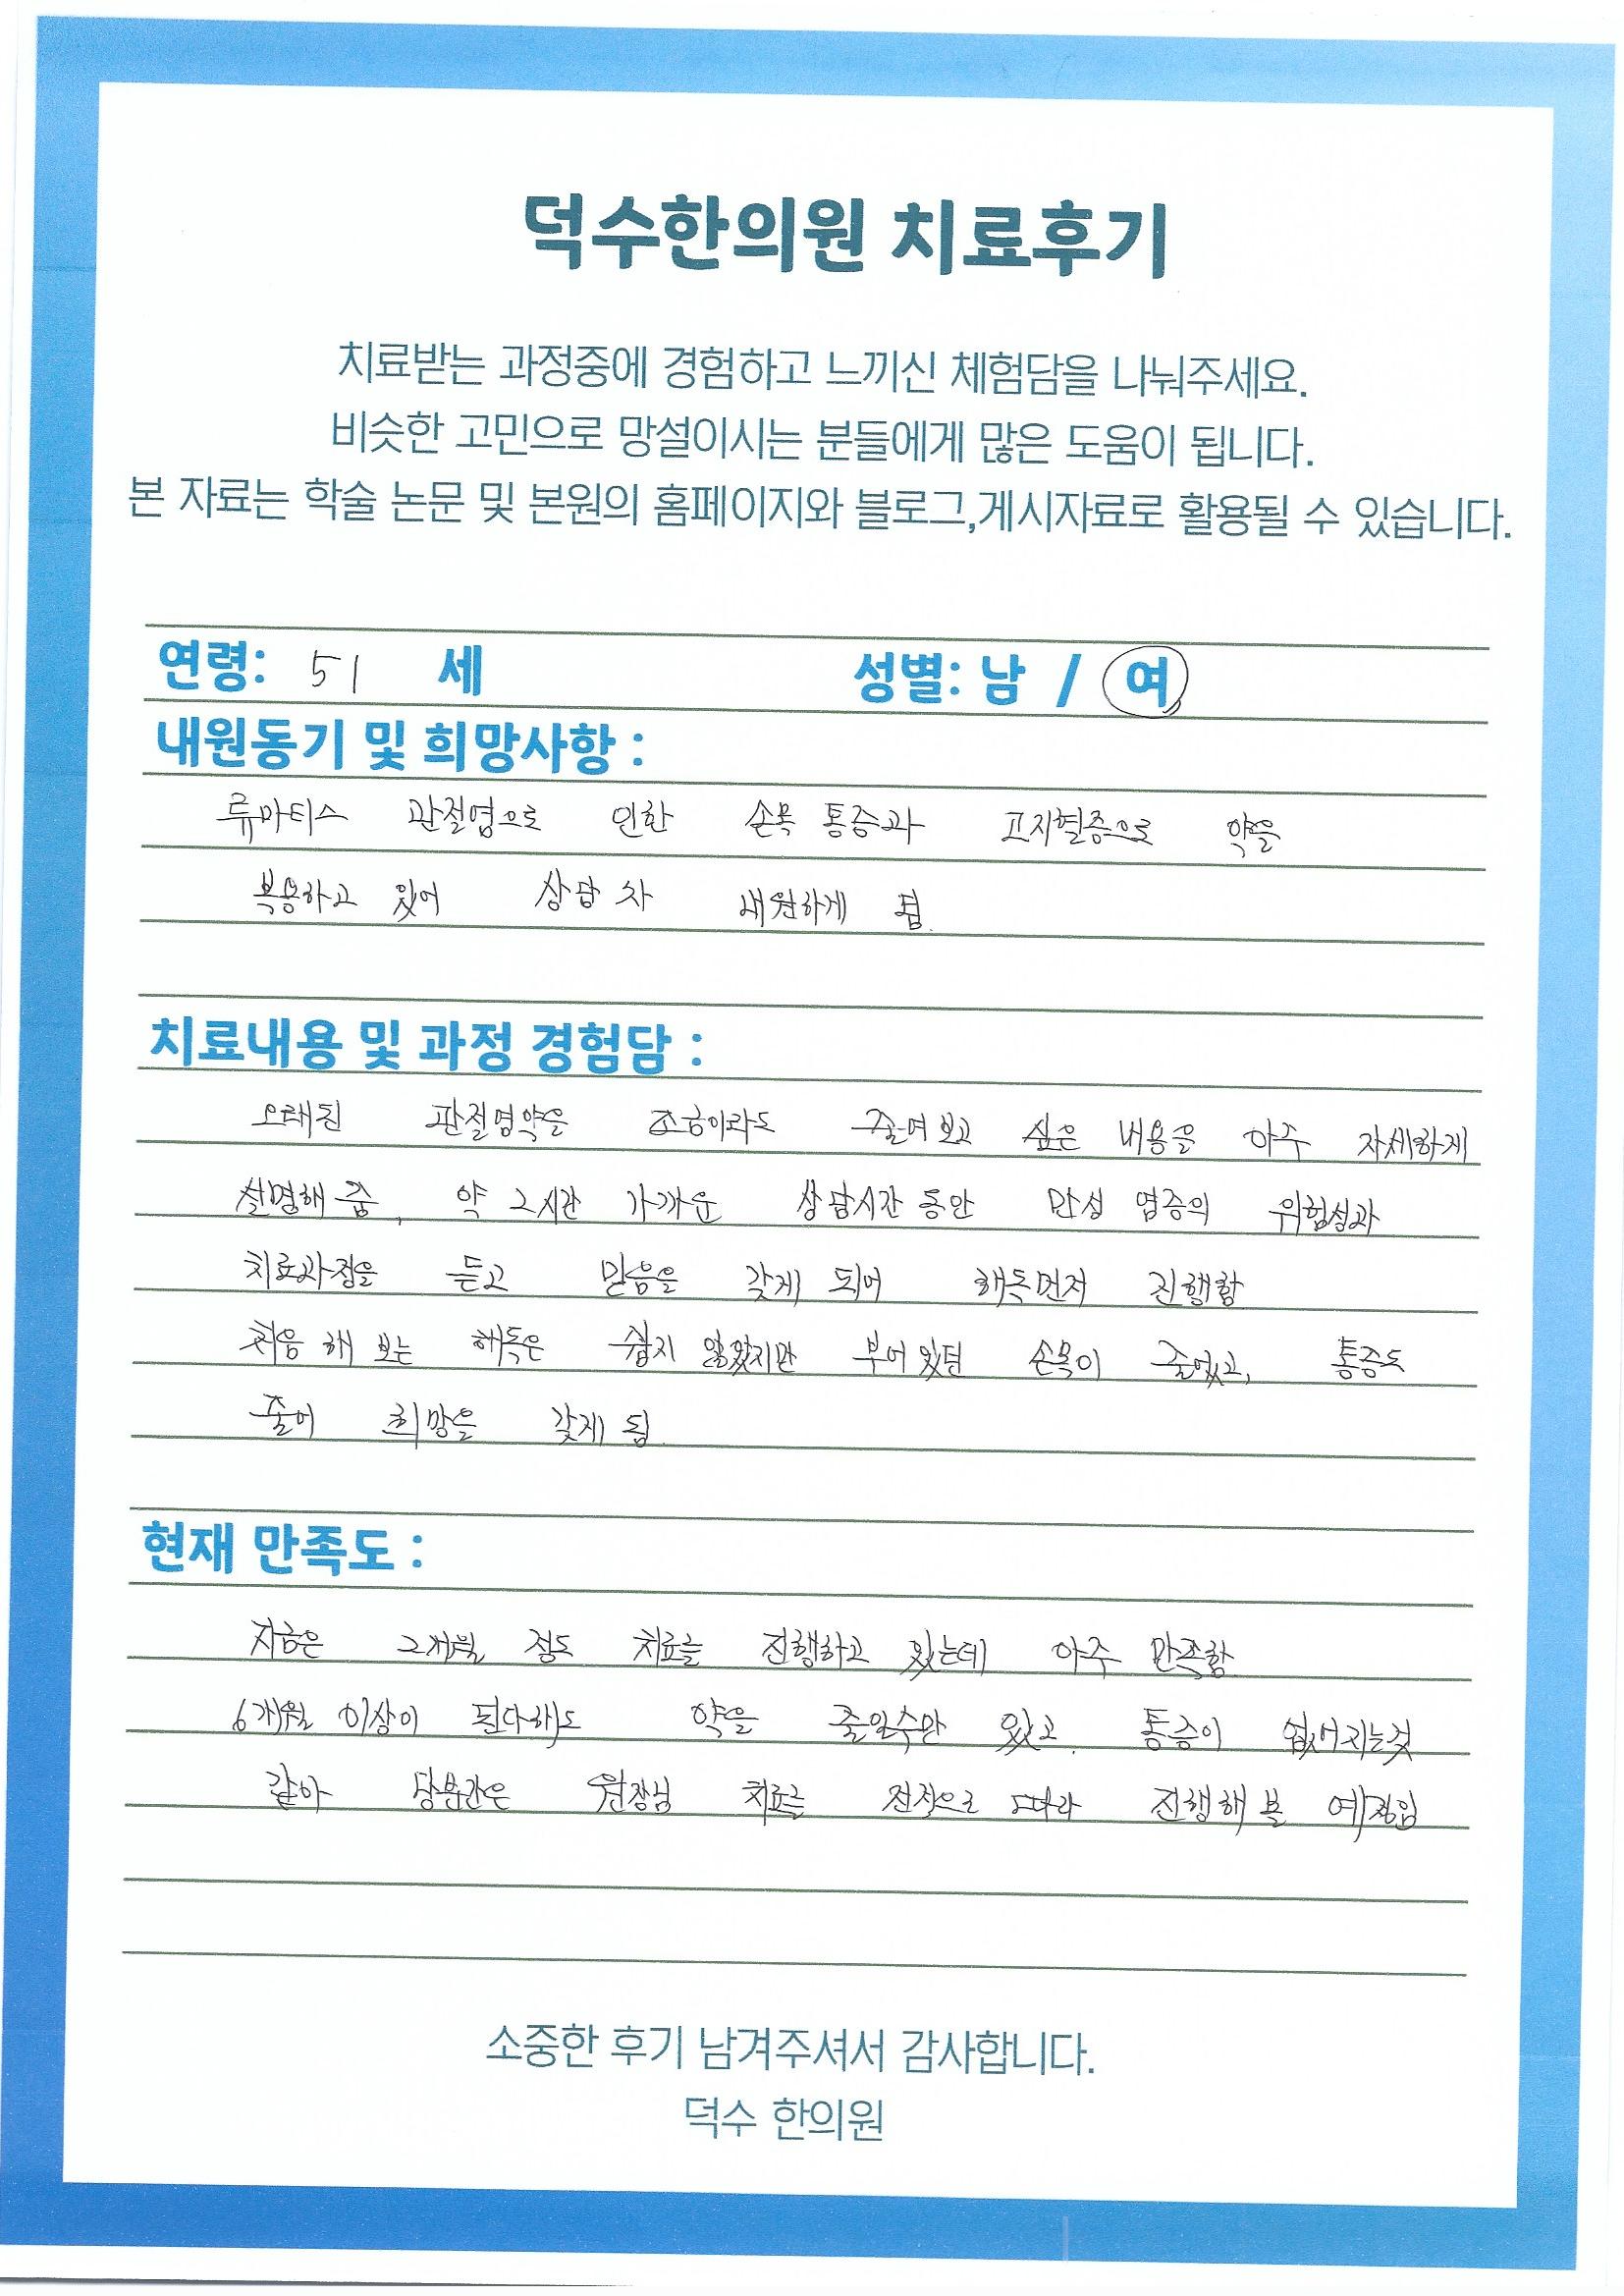 덕수한의원 치료후기
치료받는 과정중에 경험하고 느끼신 체험담을 나눠주세요.
비슷한 고민으로 망설이시는 분들에게 많은 도움이 됩니다.
본 자료는 학술 논문 및 본원의 홈페이지와 블로그,게시자료로 활용될 수 있습니다.
연령: 51 세 성별: 남 / 여
내원동기 및 희망사항 :
류마티스 관절염으로 인한 손목 통증과 고지혈증으로 약을
복용하고 있어 상담 차 내원하게 됨.
치료내용 및 과정 경험담 :
오래된 관절염약을 조금이라도 줄여보고 싶은 내용을 아주 자세하게
설명해 줌, 약 2시간 가까운 상담시간 동안 만성 염증의 위험성과
치료과정을 듣고 믿음을 갖게 되어 해독먼저 진행함
처음 해 보는 해독은 쉽지 않았지만 부어 있던 손목이 줄었고, 통증도
줄어 희망을 갖게 됨.
현재 만족도 :
지금은 2개월 정도 치료를 진행하고 있는데 아주 만족함.
6개월 이상이 된다해도 약을 줄일수만 있고 통증이 없어지는것
같아 당분간은 원장님 치료를 전적으로 따라 진행해 볼 예정임
소중한 후기 남겨주셔서 감사합니다.
덕수 한의원